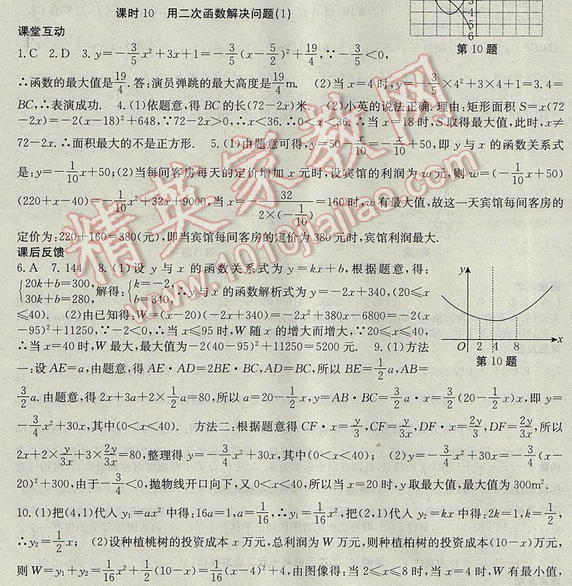 课时10 用二次函数解决问题(1)
第10题
课堂互动
1.C 2.D 3.y=-3/5x²+3x+1=-3/5(x-5/2)²+19/4,∵-3/5<0,
∴函数的最大值是19/4.答:演员弹跳的最大高度是19/4m. (2)当x=4时,y=-3/5×4²+3×4+1=3.4=
BC,∴表演成功. 4.(1)依题意,得BC的长(72-2x)米. (2)小英的说法正确.理由:矩形面积S=x(72
-2x)=-2(x-18)²+648,∵72-2x>0,∴x<36.∴0<x<36.∴当x=18时,S取得最大值,此时,x≠
72-2x.∴面积最大的不是正方形. 5.(1)由题意可得,y=50-x/10=-1/10x+50,即y与x的函数关系式
是:y=-1/10x+50,(2)当每间客房每天的定价增加x元时,设宾馆的利润为w元,则w=(-1/10x+50)
(220+x-40)=-1/10x²+32x+9000,当x=-32/(2×(-1/10))=160时,w有最大值,故这一天宾馆每间客房的
定价为:220+160=380(元),即当宾馆每间客房的定价为380元时,宾馆利润最大.
课后反馈
6.A 7.144 8.(1)设y与x的函数关系式为y=kx+b,根据题意,得:
{20k+b=300, 30k+b=280, 解得:{k=-2, b=340,∴y与x的函数解析式为y=-2x+340,(20≤x
≤40). (2)由已知得:W=(x-20)(-2x+340)=-2x²+380x-6800=-2(x
-95)²+11250,∵-2<0,∴当x≤95时,W随x的增大而增大,∵20≤x≤40,
∴当x=40时,W最大,最大值为-2(40-95)²+11250=5200元. 9.(1)方法
y
O 2 4 8 x
第10题
一:设AE=a,由题意,得AE·AD=2BE·BC,AD=BC,所以BE=1/2a,AB=
3/2a.由题意,得2x+3a+2×1/2a=80,所以a=20-1/2x,y=AB·BC=3/2a·x=3/2(20-1/2x)x,即y=
-3/4x²+30x,其中(0<x<40). 方法二:根据题意得CF·x=y/3,CF=y/3x,DF·x=2y/3,DF=2y/3x,所以
2x+2×y/3x+3×2y/3x=80,整理得y=-3/4x²+30x,其中(0<x<40); (2)y=-3/4x²+30x=-3/4(x-
20)²+300,由于-3/4<0,抛物线开口向下,又0<x<40,所以当x=20时,y取最大值,最大值为300m².
10.(1)把(4,1)代入y₁=ax²中得:16a=1,a=1/16,∴y₁=1/16x²,把(2,1)代入y₂=kx中得:2k=1,k=1/2,
∴y₂=1/2x; (2)设种植桃树的投资成本x万元,总利润为W万元,则种植柏树的投资成本(10-x)万元,
则W=y₁+y₂=1/16x²+1/2(10-x)=1/16(x-4)²+4,由图像得:当2≤x≤8时,当x=4时,W有最小值,
精英家教网
www.1010jiajiao.com